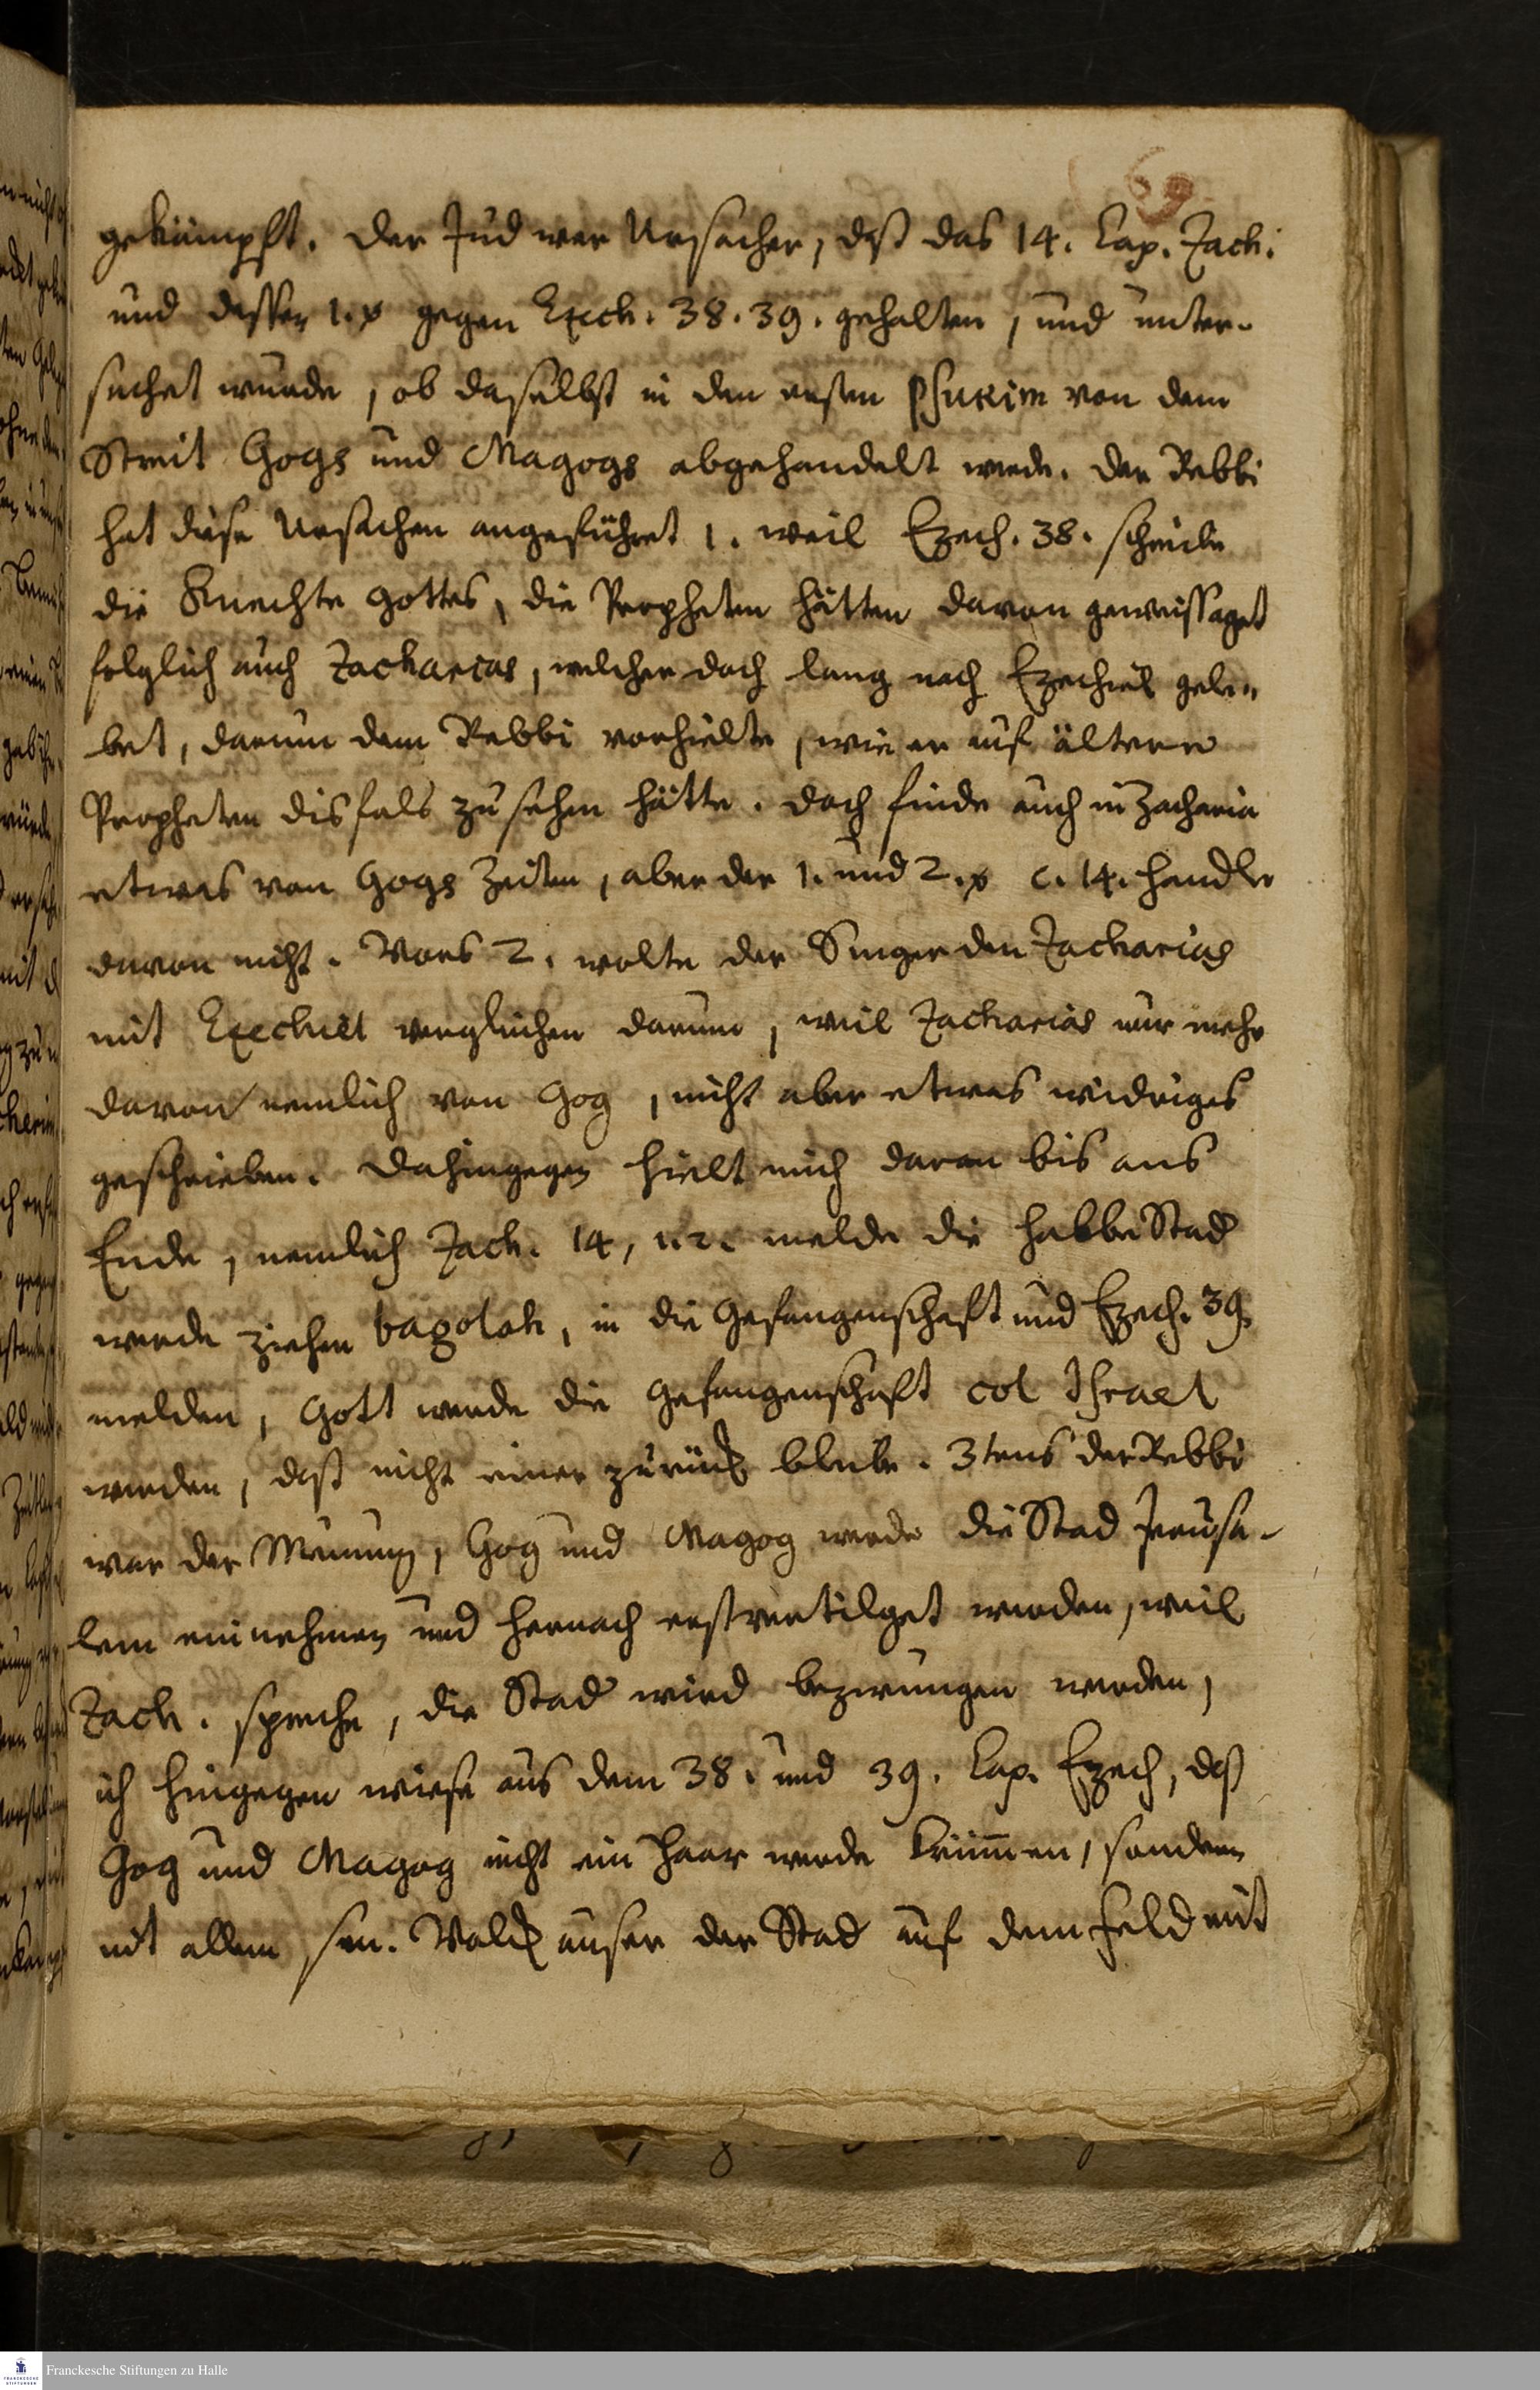 69
gekämpfft. Der Jud war Ursacher, daß das 14. Cap. Zach.
und dessen 1. V gegen Ezech. 38. 39. gehalten, und unter-
suchet wurde, ob daselbst in den ersten Psukim von dem
Streit Gogs und Magogs abgehandelt werde. Der Rebbi
hat diese Ursachen angeführet 1. weil Ezech. 38. schreibe
die Knechte Gottes, die Propheten hätten davon geweissaget
folglich auch Zacharias, welcher doch lang nach Ezechiel gele-
bet, darum dem Rebbi vorhielte, wie er auf ältere
Propheten disfals zu sehen hätte. Doch finde auch in Zacharia
etwas von Gogs Zeiten, aber der 1. und 2. V c. 14. handle
davon nicht. Vors 2. wolte der Singer den Zacharias
mit Ezechiel vergleichen darum, weil Zacharias nur mehr
davon nemlich von Gog, nicht aber etwas widriges
geschrieben. Dahingegen hielt mich daran bis ans
Ende, nemlich Zach. 14, 1. 2. melde die halbe Stad
werde ziehen bagolah, in die Gefangenschafft und Ezech. 39.
melden, Gott werde die Gefangenschafft col Israel
wenden, daß nicht einer zurück bleibe. 3tens der Rebbi
war der Meinung, Gog und Magog werde die Stad Jerusa-
lem einnehmen und hernach erst vertilget werden, weil
Zach. spreche, die Stad wird bezwungen werden,
ich hingegen wiese aus dem 38. und 39. Cap. Ezech, daß
Gog und Magog nicht ein Haar werde krümen, sondern
mit allem sein. Volck ausser der Stad auf dem Feld mit
Franckesche Stiftungen zu Halle